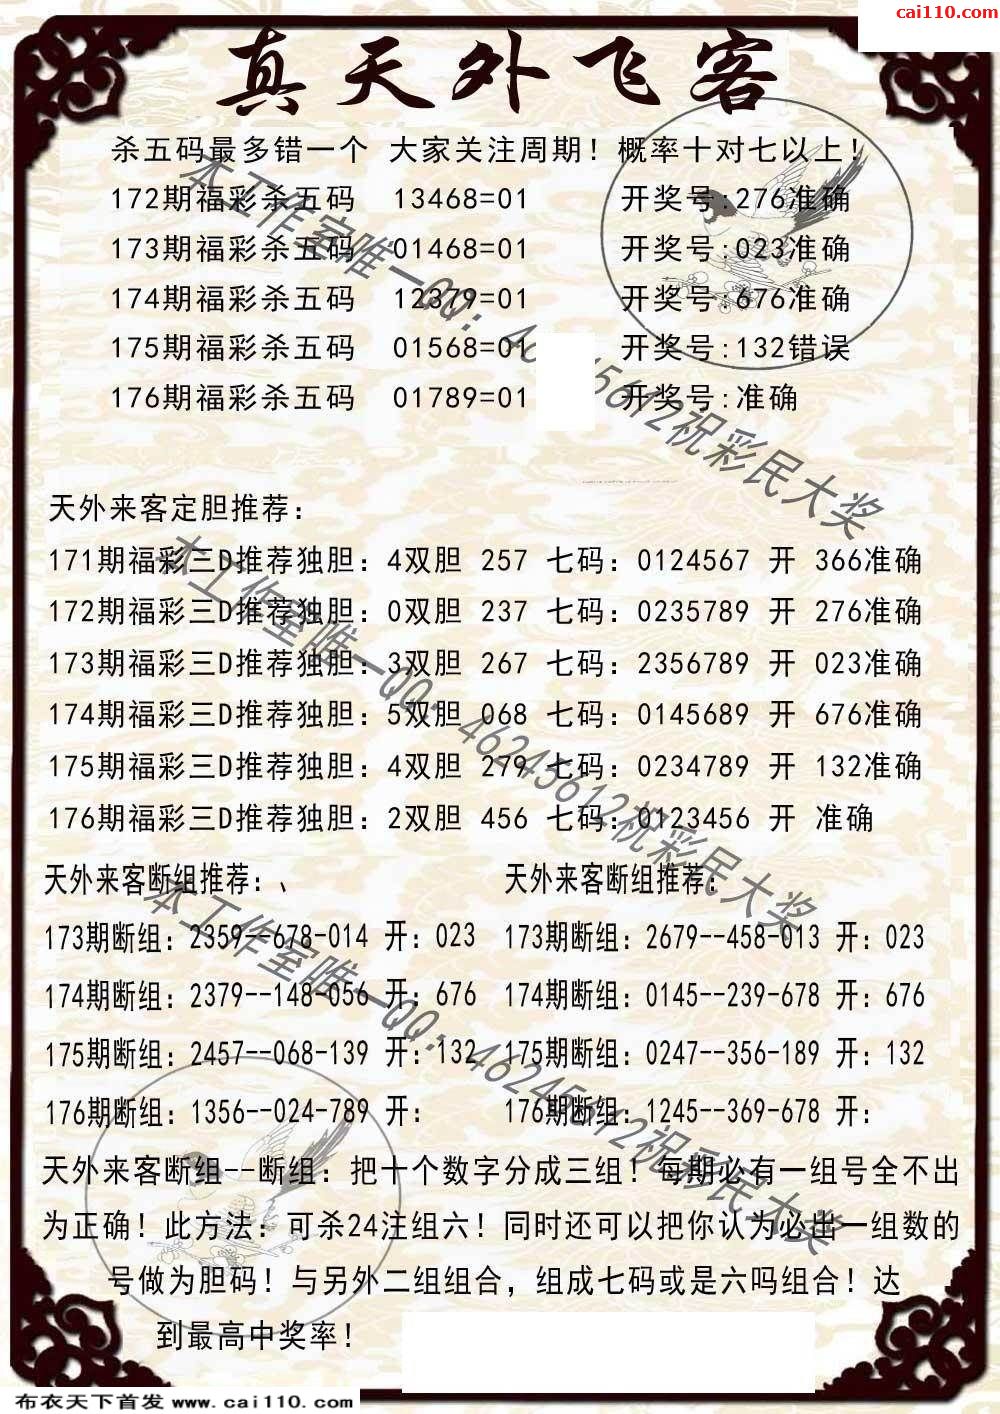 cai110.com
真天外飞客
杀五码最多错一个 大家关注周期！概率十对七以上！
172期福彩杀五码 13468=01 开奖号:276准确
173期福彩杀五码 01468=01 开奖号:023准确
174期福彩杀五码 12379=01 开奖号:676准确
175期福彩杀五码 01568=01 开奖号:132错误
176期福彩杀五码 01789=01 开奖号:准确
天外来客定胆推荐：
171期福彩三D推荐独胆：4双胆 257 七码：0124567 开 366准确
172期福彩三D推荐独胆：0双胆 237 七码：0235789 开 276准确
173期福彩三D推荐独胆：3双胆 267 七码：2356789 开 023准确
174期福彩三D推荐独胆：5双胆 068 七码：0145689 开 676准确
175期福彩三D推荐独胆：4双胆 279 七码：0234789 开 132准确
176期福彩三D推荐独胆：2双胆 456 七码：0123456 开 准确
天外来客断组推荐：、 天外来客断组推荐：
173期断组：2359--678-014 开：023 173期断组：2679--458-013 开：023
174期断组：2379--148-056 开：676 174期断组：0145--239-678 开：676
175期断组：2457--068-139 开：132 175期断组：0247--356-189 开：132
176期断组：1356--024-789 开： 176期断组：1245--369-678 开：
天外来客断组--断组：把十个数字分成三组！每期必有一组号全不出
为正确！此方法：可杀24注组六！同时还可以把你认为必出一组数的
号做为胆码！与另外二组组合，组成七码或是六吗组合！达
到最高中奖率！
本工作室唯一QQ：46245612祝彩民大奖
本工作室唯一QQ：46245612祝彩民大奖
布衣天下首发 www.cai110.com